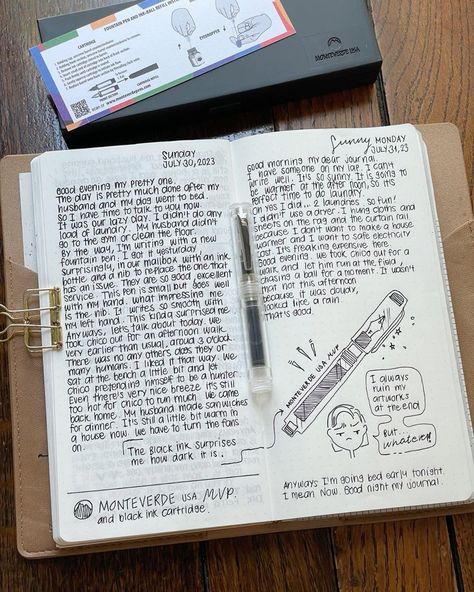 FOUNTAIN PEN AND INK-BALL REFILL INST
CARTRIDGE
EYEDROPPER
www.monteverdepens.com
MONTEVERDE
Sunday
JULY 30, 2023
Good evening my pretty one.
The day is pretty much done after my
husband and my dog went to bed.
So I have time to talk to you now.
It was our lazy day. I didn't do any
load of laundry. My husband didn't
go to the gym or clean the floor.
By the way, I'm writing with a new
fountain pen. I got it yesterday
surprisingly, in our mailbox with an ink
bottle, and a nib to replace the one that
has an issue. They are so good, excellent
service. This pen is small but goes well
with my hand. What impressing me
is the nib. It writes so smooth with
my left hand. This kinda surprised me.
Anyways, let's talk about today. We
took Chico out for an afternoon walk
very earlier than usual, around 3 o'clock.
There was no any others dogs they or
many humans. I liked it that way. We
sat at the beach a little bit and let
Chico pretending himself to be a hunter.
Even there's very nice breeze it's still
too hot for Chico to run much. We came
back home. My husband made sandwiches
for dinner. It's still a little bit warm in
a house now. We have to turn the fans
on.
The black ink surprises
me how dark it is.
MONTEVERDE USA MVP.
and black ink cartridge.
Sunny MONDAY
JULY 31, 23
Good morning my dear journal.
I have someone on my lap. I can't
write well. It's so sunny. It is going to
be warmer at the after noon, so it's
perfect time to do laundry.
Oh yes I did... 2 laundries. So fun!
I didn't use a dryer. I hung cloths and
sheets on the rag and the curtain rail
because I don't want to make a house
warmer and I want to safe electricity
cost. It's freaking expensive here.
Good evening. We took Chico out for a
walk and let him run at the field,
chasing a ball for a moment. It wasn't
that hot this afternoon
because it was cloudy,
looked like a rain.
That's good.
MONTEVERDE USA MVP
I always
ruin my
artworks
at the end
But...
whatever
Anyways I'm going bed early tonight.
I mean Now. Good night my journal.